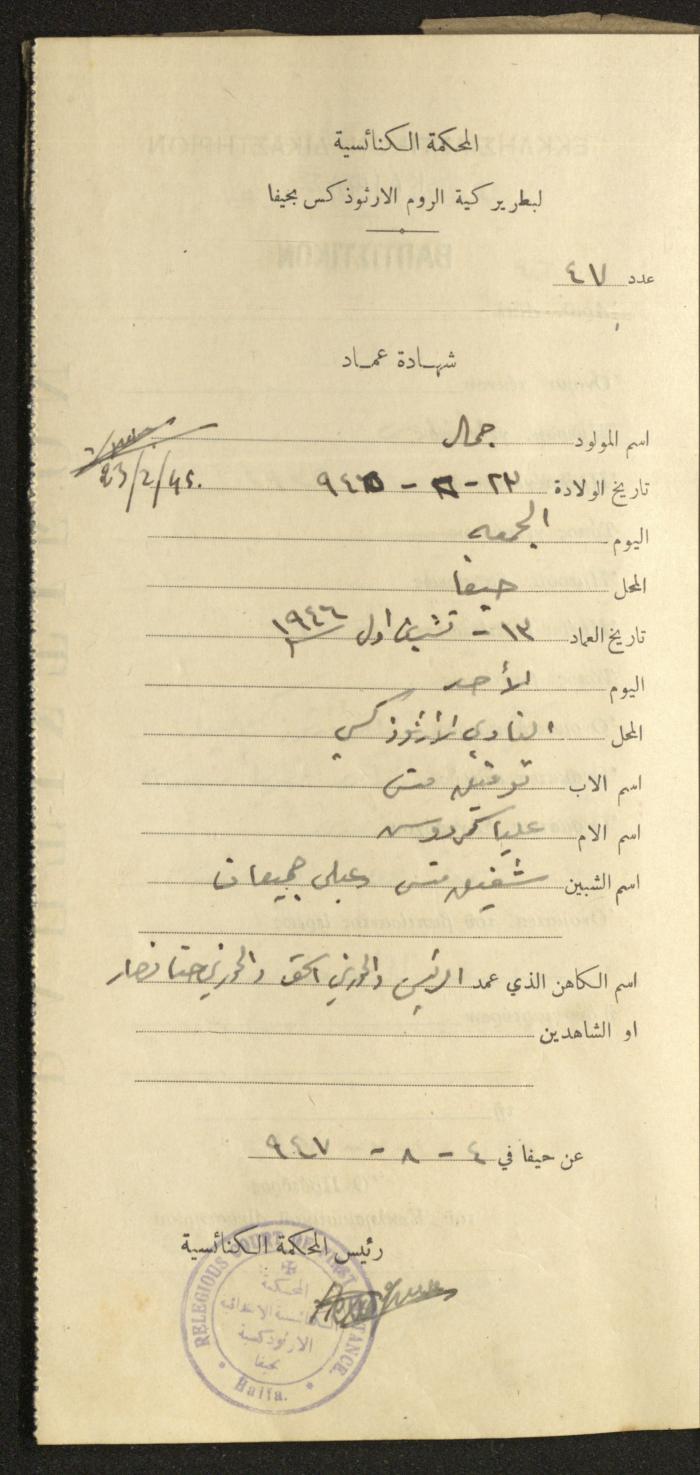 المحكمة الكنائسية
لبطريركية الروم الارثوذكس بحيفا
عدد ٤٧
شهادة عماد
اسم المولود جمال
تاريخ الولادة ٢٣ - ٢ - ٩٤٥
23/2/45.
اليوم الجمعه
المحل حيفا
تاريخ العماد ١٣ - تشرين اول ١٩٤٦
اليوم الأحد
المحل النادي الأرثوذكسي
اسم الاب توفيق
اسم الام عليا
اسم الشبين شفيق
اسم الكاهن الذي عمد الرئيس والخوري اسحق والخوري حنا نصار
او الشاهدين
عن حيفا في ٤ - ٨ - ٩٤٧
رئيس المحكمة الكنائسية
RELEGIOUS COURT OF FIRST INSTANCE.
المحكمة
الكنائسية الابتدائية
الارثوذكسية
بحيفا
Haifa.